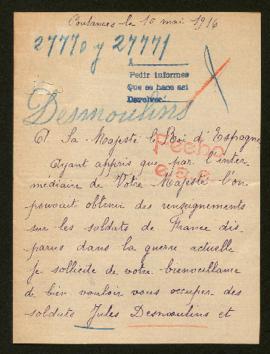 Coutances le 10 mai 1916
27770 y 27771
A
Pedir informes
Que se hace así
Devolver.
Desmoulins
A Sa Majesté le Roi d'Espagne
Pecho
Ayant appris que par l'inter-
médiaire de Votre Majesté l'on
pouvait obtenir des renseignements
sur les soldats de France dis-
parus dans la guerre actuelle
je sollicite de votre bienveillance
de bien vouloir vous occuper des
soldats Jules Desmoulins et